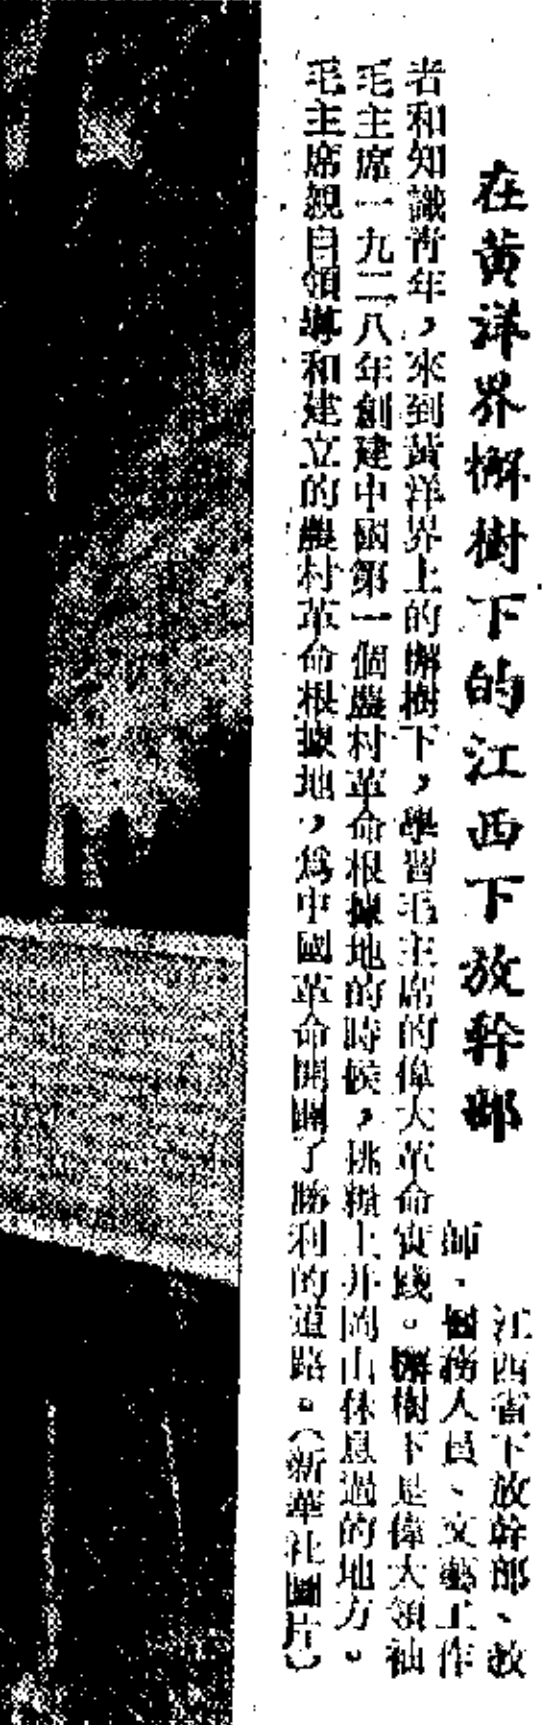 在黃洋界槲樹下的江西下放幹部
江西省下放幹部、教
師、醫務人員、文藝工作
者和知識青年，來到黃洋界上的槲樹下，學習毛主席的偉大革命實踐。槲樹下是偉大領袖
毛主席一九二八年創建中國第一個農村革命根據地的時候，挑糧上井岡山休息過的地方。
毛主席親自領導和建立的農村革命根據地，爲中國革命開闢了勝利的道路。（新華社圖片）